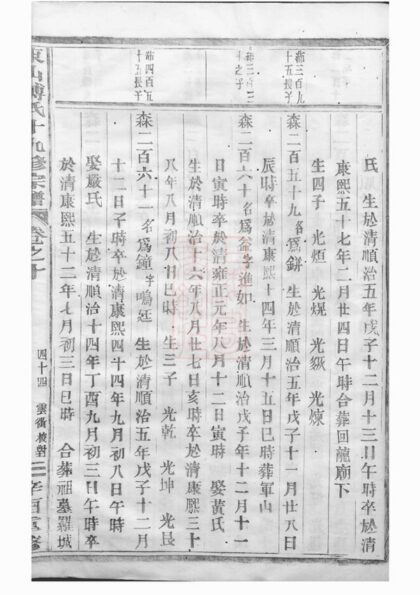 氏　生於清順治五年戊子十二月十三日午時卒於清
康熙五十七年二月廿四日午時合葬回龍廟下
生四子　光烜　光焜　光　光煉
森三百九
十五長子
森二百五十九名為鉼　生於清順治五年戊子十一月廿八日
辰時卒於清康熙三十四年三月十五日巳時葬軍山
之子
森二百六十名為釜字進如　生於清順治戊子年十二月十一
日寅時卒於清雍正元年八月十二日寅時　娶黃氏
生於清順治十六年八月廿七日亥時卒於清康熙三十
八年八月初八日巳時　生三子　光乾　光坤　光艮
森四百五
十五長子
森二百六十一名為鐘字鳴廷　生於清順治五年戊子十二月
十二日子時卒於清康熙四十四年九月初八日午時
娶嚴氏　生於清順治十四年丁酉九月初三日午時卒
於清康熙五十二年七月初三日巳時　合葬祖墓羅城
東山傅氏十九修宗譜　卷之十　四十四　雲衢校對